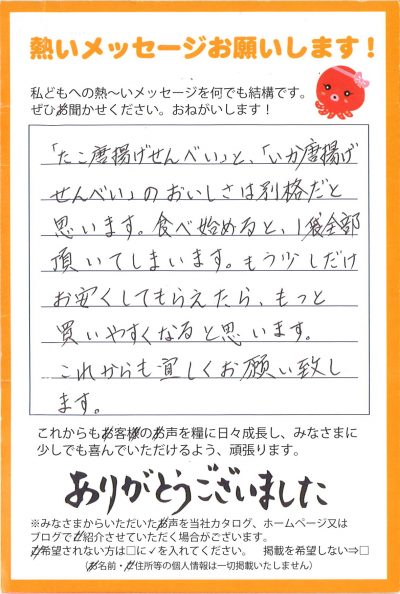 熱いメッセージお願いします！
私どもへの熱〜いメッセージを何でも結構です。
ぜひお聞かせください。おねがいします！
「たこ唐揚げせんべい」と、「いか唐揚げ
せんべい」のおいしさは別格だと
思います。食べ始めると、1袋全部
頂いてしまいます。もう少しだけ
お安くしてもらえたら、もっと
買いやすくなると思います。
これからも宜しくお願い致し
ます。
これからもお客様のお声を糧に日々成長し、みなさまに
少しでも喜んでいただけるよう、頑張ります。
ありがとうございました
※みなさまからいただいたお声を当社カタログ、ホームページ又は
ブログでご紹介させていただく場合がございます。
ご希望されない方は□に✓を入れてください。　掲載を希望しない⇒□
（お名前・ご住所等の個人情報は一切掲載いたしません）